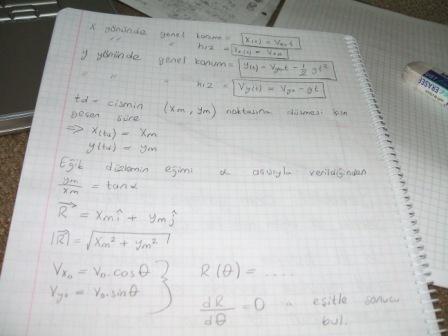 x yönünde genel konum = x(t) = Vx₀.t
" " hız = Vx(t) = Vx₀
y yönünde genel konum = y(t) = Vy₀t - 1/2 gt²
" " " hız = Vy(t) = Vy₀ - gt
td = cismin (xm, ym) noktasına düşmesi için
geçen süre
⇒ x(td) = xm
y(td) = ym
Eğik düzlemin eğimi α açısıyla verildiğinden
ym/xm = tanα
R⃗ = xm î + ym ĵ
|R⃗| = √(xm² + ym²)
Vx₀ = V₀.cosθ
Vy₀ = V₀.sinθ
R(θ) = .....
dR/dθ = 0 a eşitle sonucu
bul.
ERASER